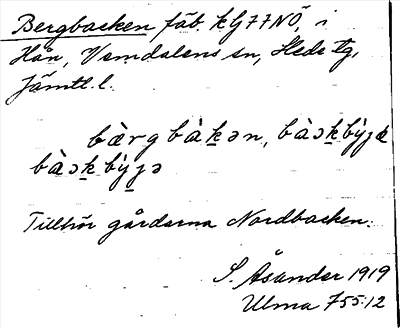 Bergbacken fäb. kG77NÖ, i
Hån, Vemdalens sn, Hede tg,
Jämtl. l.
bàrgbàḵən, bàɔḵbỳjæ
bàɔḵbỳjə
Tillhör gårdarna Nordbacken.
S. Åsander 1919
Ulma 755:12